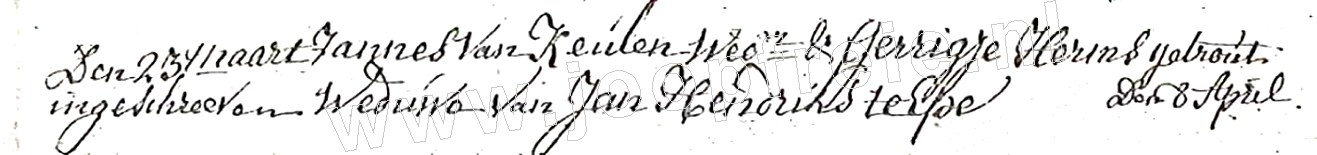 Den 23 Maart Jannes Van Keulen Wedr & Gerrigje Herms getrout
ingeschreeven Weduwe Van Jan Hendriks te Epe Den 8 April.